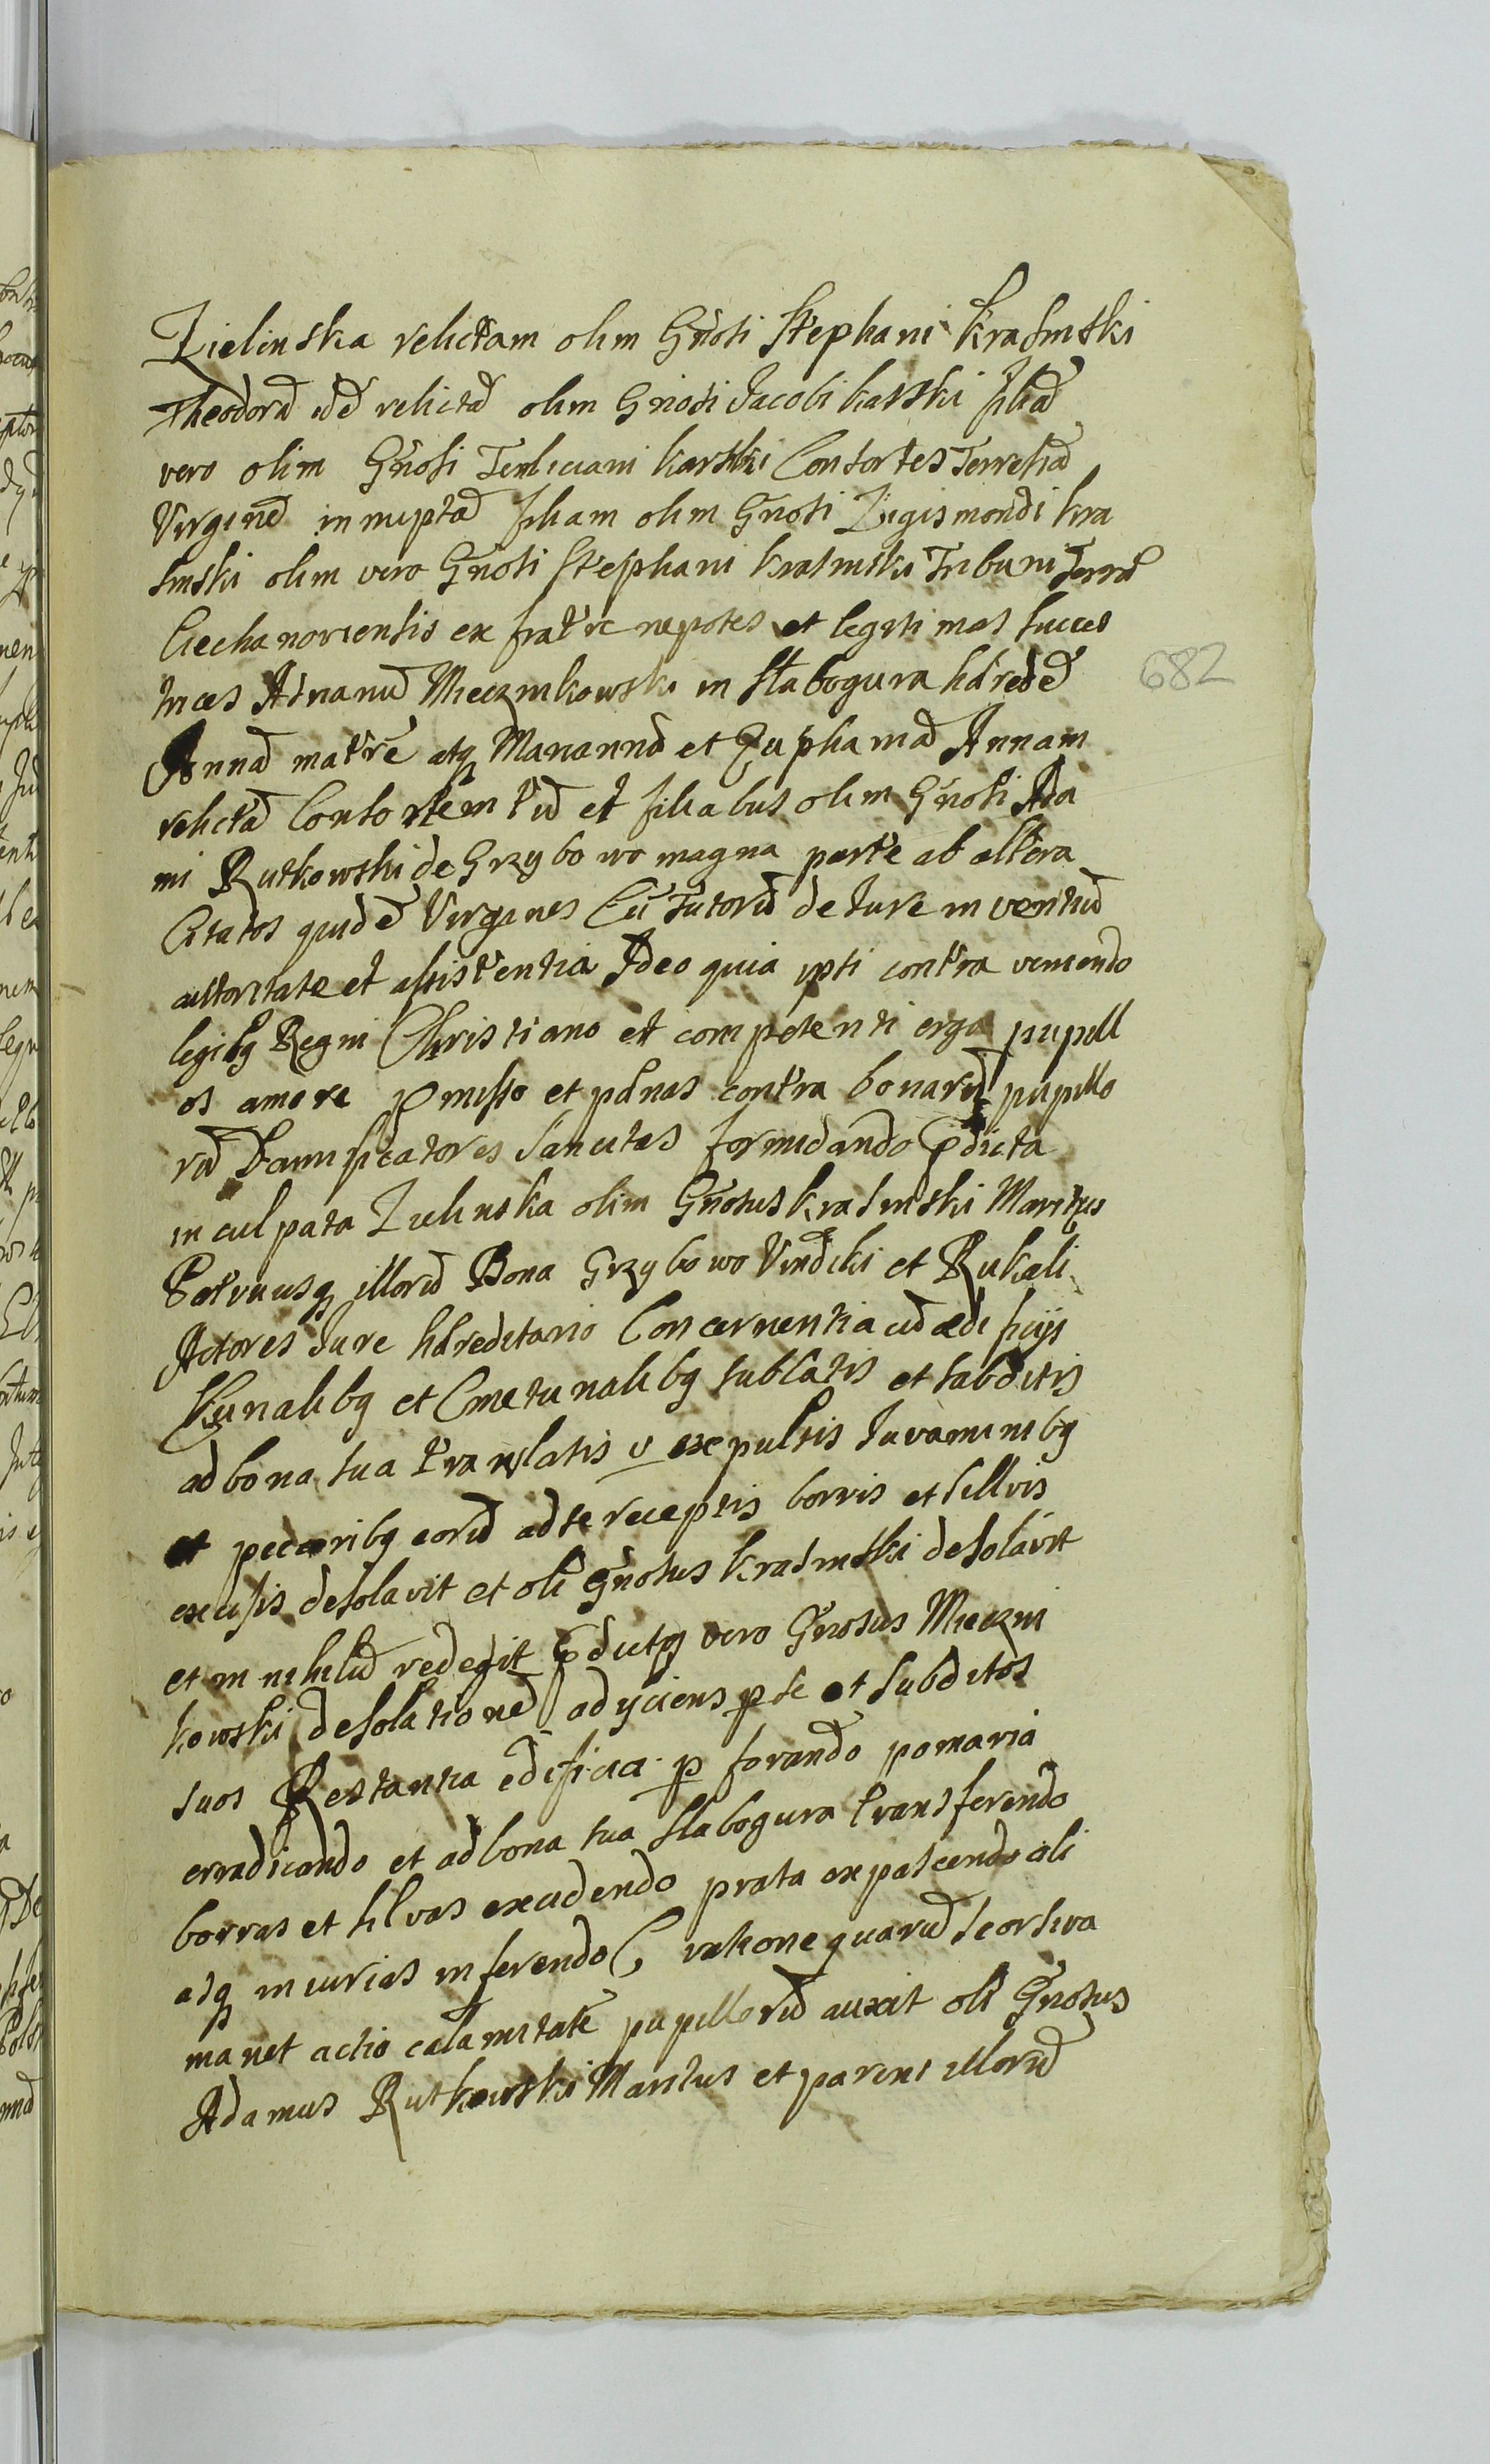 Zielinska relictam olim Gnosi Stephani Krasinski
Theodorā idē relictā olim Gnosi Jacobi karski filiā
vero olim Gnosi karski Consortes
Virginē innuptā filiam olim Gnosi Zigismondi kra
sinski olim vero Gnosi Stephani krasinski Tribuni Terrae
Ciechanoviensis ex fratre nepotes et legitimas succes
trices Adnanū Mieczinkowski in Slabogura hdredē
Annā matrē atq Mariannā et Euphamiā Annam
relictā Consortem tū et filiabus olim Gnosi Ada
mi Rutkowski de Grzybowo magna parte ab altera
Citatos quidē Virgines Cū Tutorū de Jure inveniendū
auttoritate et assistentia Ideo quia ipsi contra veniendo
legibq Regni Christiano et competenti erga pupill
os amore p̄misso et pdnas contra bonorū pupillo
rū Damnificatores sancitas formidando p̄dicta
inculpata Zielinska olim Gnosus krasinski Maritus
Patruusq illorū Bona Grzybowo Vindiki et Rukali
Actores Jure hdreditario Concernentia cū ædificijs
Cmetunalibq sublatis et subditis
ad bona sua translatis v expulsis Juvaminibq
et pecoribq eorū ad se receptis borris et sillvis
excisis desolavit et oli Gnosus krasinski desolavit
et in nihilū redegit p̄dictq vero Gnosus Mieczin
kowski desolationē adyciens p se et subditos
suos Restantia edificia p forando pomaria
erradicando et ad bona sua Slabogura transferendo
borras et silvas excidendo prata expascendo ali
asq iniurias inferendo ratione quarū seorsiva
manet actio calamitatē pupillorū auxit oli Gnosus
Adamus Rutkowski Maritus et parens illorū
682